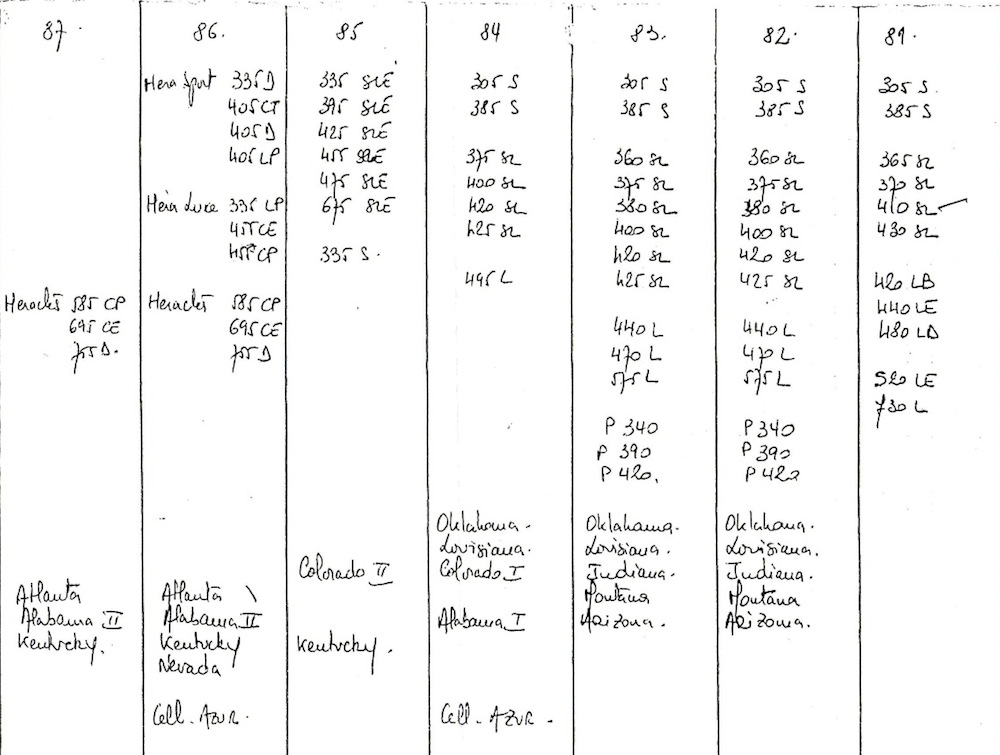 87. 86. 85 84 83. 82. 81.
Hera Sport 335D 335 SLE 305 S 305 S 305 S 305 S.
405CT 395 SLE 385 S 385 S 385 S 385 S
405D 425 SLE
405LP 455 SLE 375 SL 360 SL 360 SL 365 SL
475 SLE 400 SL 375 SL 375 SL 370 SL
Hera Luxe 335 LP 675 SLE 420 SL 380 SL 380 SL 410 SL
455CE 425 SL 400 SL 400 SL 430 SL
455CP 335 S. 420 SL 420 SL
495 L 425 SL 425 SL 420 LB
Heraclès 585 CP Heraclès 585CP 440 LE
695 CE 695CE 440 L 440 L 480 LD
755D. 755D 470 L 470 L
575 L 575 L 520 LE
730 L
P 340 P 340
P 390 P 390
P 420. P 420
Oklahoma. Oklahoma. Oklahoma.
Lovisiana. Lovisiana. Lovisiana.
Colorado II Colorado I Indiana. Indiana.
Atlanta Atlanta Montana Montana
Alabama II Alabama II Alabama I Arizona. Arizona.
Kentucky. Kentucky Kentucky.
Nevada
Cell. AZUR. Cell. AZUR.